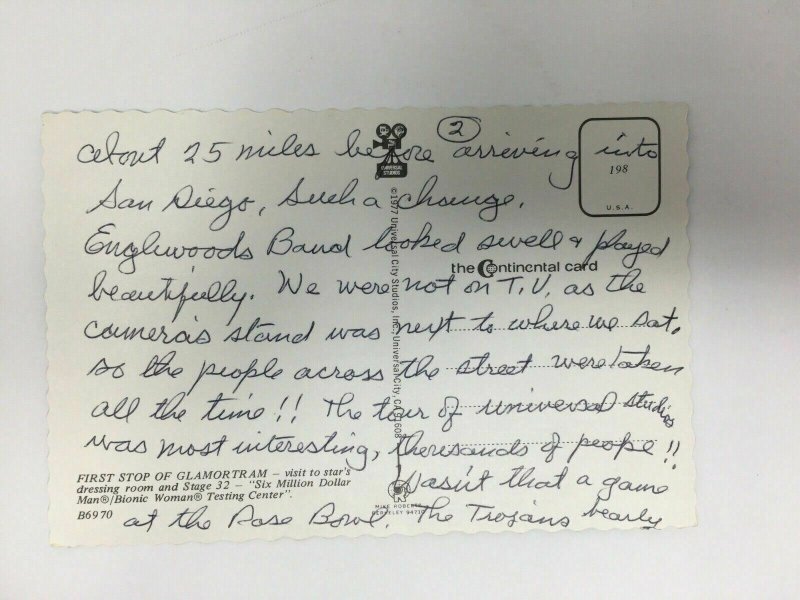 2
about 25 miles before arriving into
San Diego, Such a change.
Englewoods Band looked swell & played
beautifully. We were not on T.V. as the
camera's stand was next to where we sat,
so the people across the street were taken
all the time!! The tour of universal studios
was most interesting, thousands of people!!
Wasn't that a game
at the Rose Bowl. The Trojans bearly
UNIVERSAL STUDIOS
198
U.S.A.
the Continental card
©1977 Universal City Studios, Inc., Universal City, CA 91608
FIRST STOP OF GLAMORTRAM – visit to star's
dressing room and Stage 32 – "Six Million Dollar
Man®/Bionic Woman® Testing Center".
B6970
MIKE ROBERTS
BERKELEY 94710